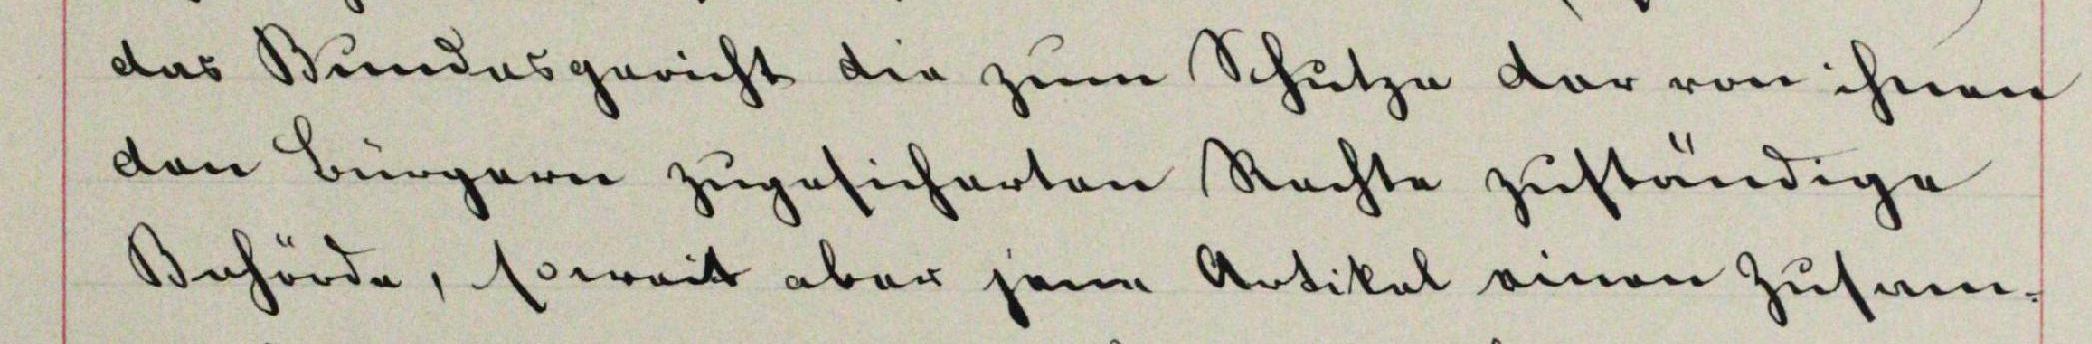 das Bundesgericht die zum Schutze der von ihnen
den Bürgern zugesicherten Rechte zuständige
Behörde, soweit aber jene Artikel einen Zusam-